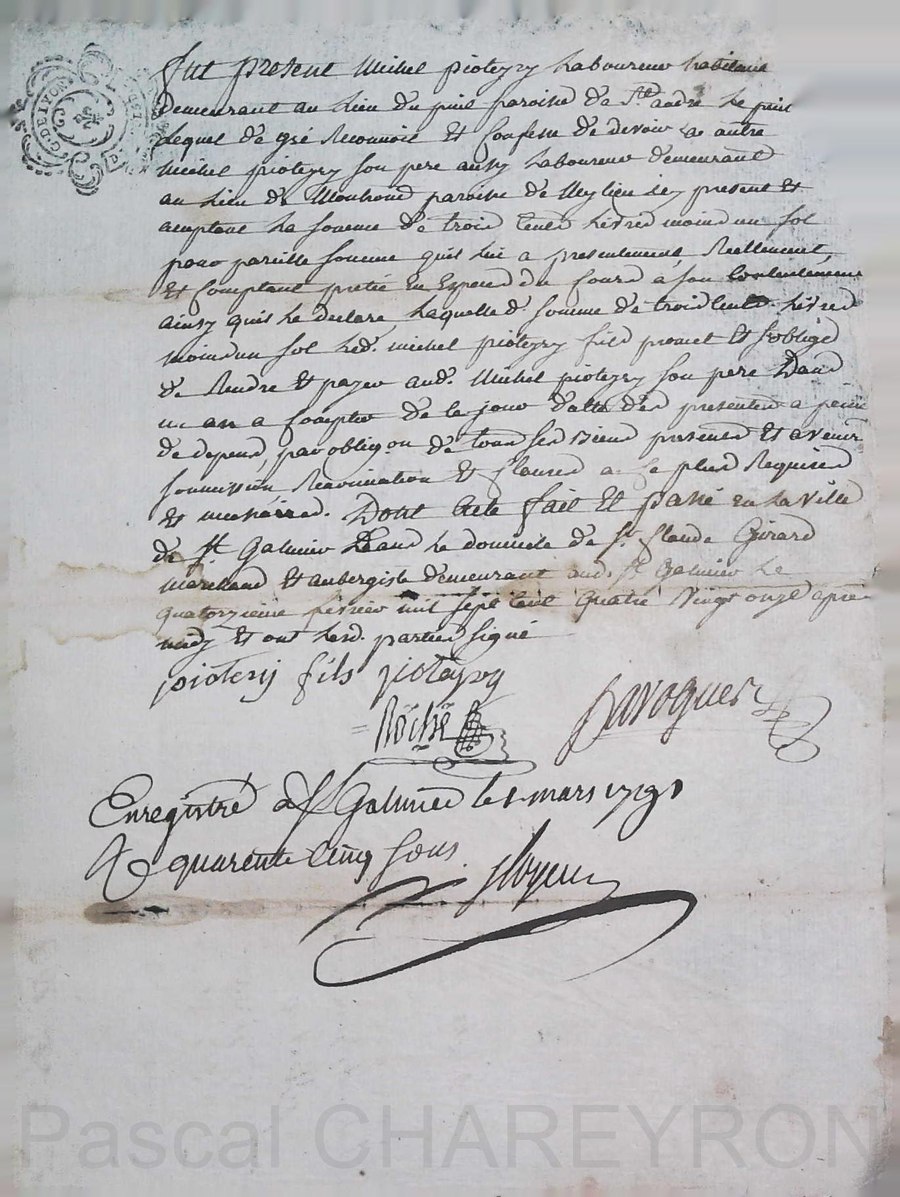 fut present Michel pioteyry Laboureur habitant
demeurant au lieu du puis paroisse de St andré le puis
Lequel de gré Reconnoit et Confesse de devoir a autre
Michel pioteyry son pere aussy Laboureur demeurant
au Lieu de paroisse de Meylieu icy present et
aceptant La somme de trois Cents Livres moins un sol
pour pareille somme quil lui a presentement Reellement
Et Comptant pretée en Especes du Cours à son Contentement
ainsy quil Le declare, Laquelle de. somme de trois Cents Livres
moins un sol Led. michel pioteyry fils promet et soblige
de Rendre et payer aud. Michel pioteyry son pere Dans
un an a Compter de ce jour datte des presentes a peine
de depens, par obligon de tous ses Biens presents et avenir
soumission Renonciation et Clauses a ce plus Requises
et necessaires. Dont acte fait et passé en la Ville
de St Galmier Dans Le domicile de sr. Claude Girard
marchand et aubergiste demeurant aud. St Galmier Le
quatorzieme fevrier mil sept Cent quatre vingt onze apres
midy et ont Lesd. parties signé
pioterij fils pioteyry
Roche
Enregistré a St Galmier le 1 mars 1791
R quarente Cinq sous.
G.DE LYON
Pascal CHAREYRON